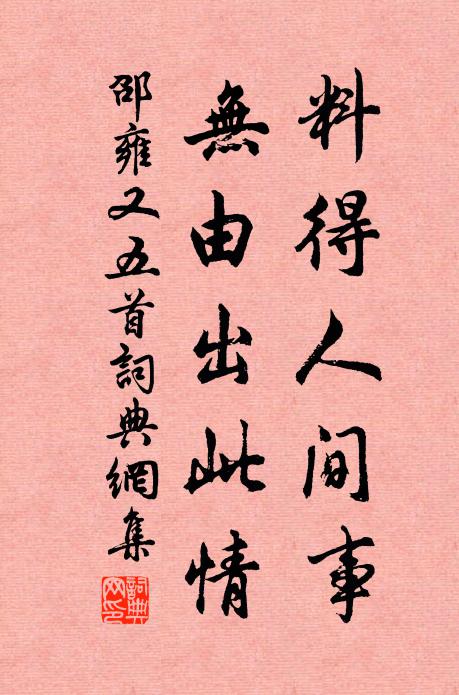 料得人间事
無由出此情
邵雍又五首詞典網集
詞典網印